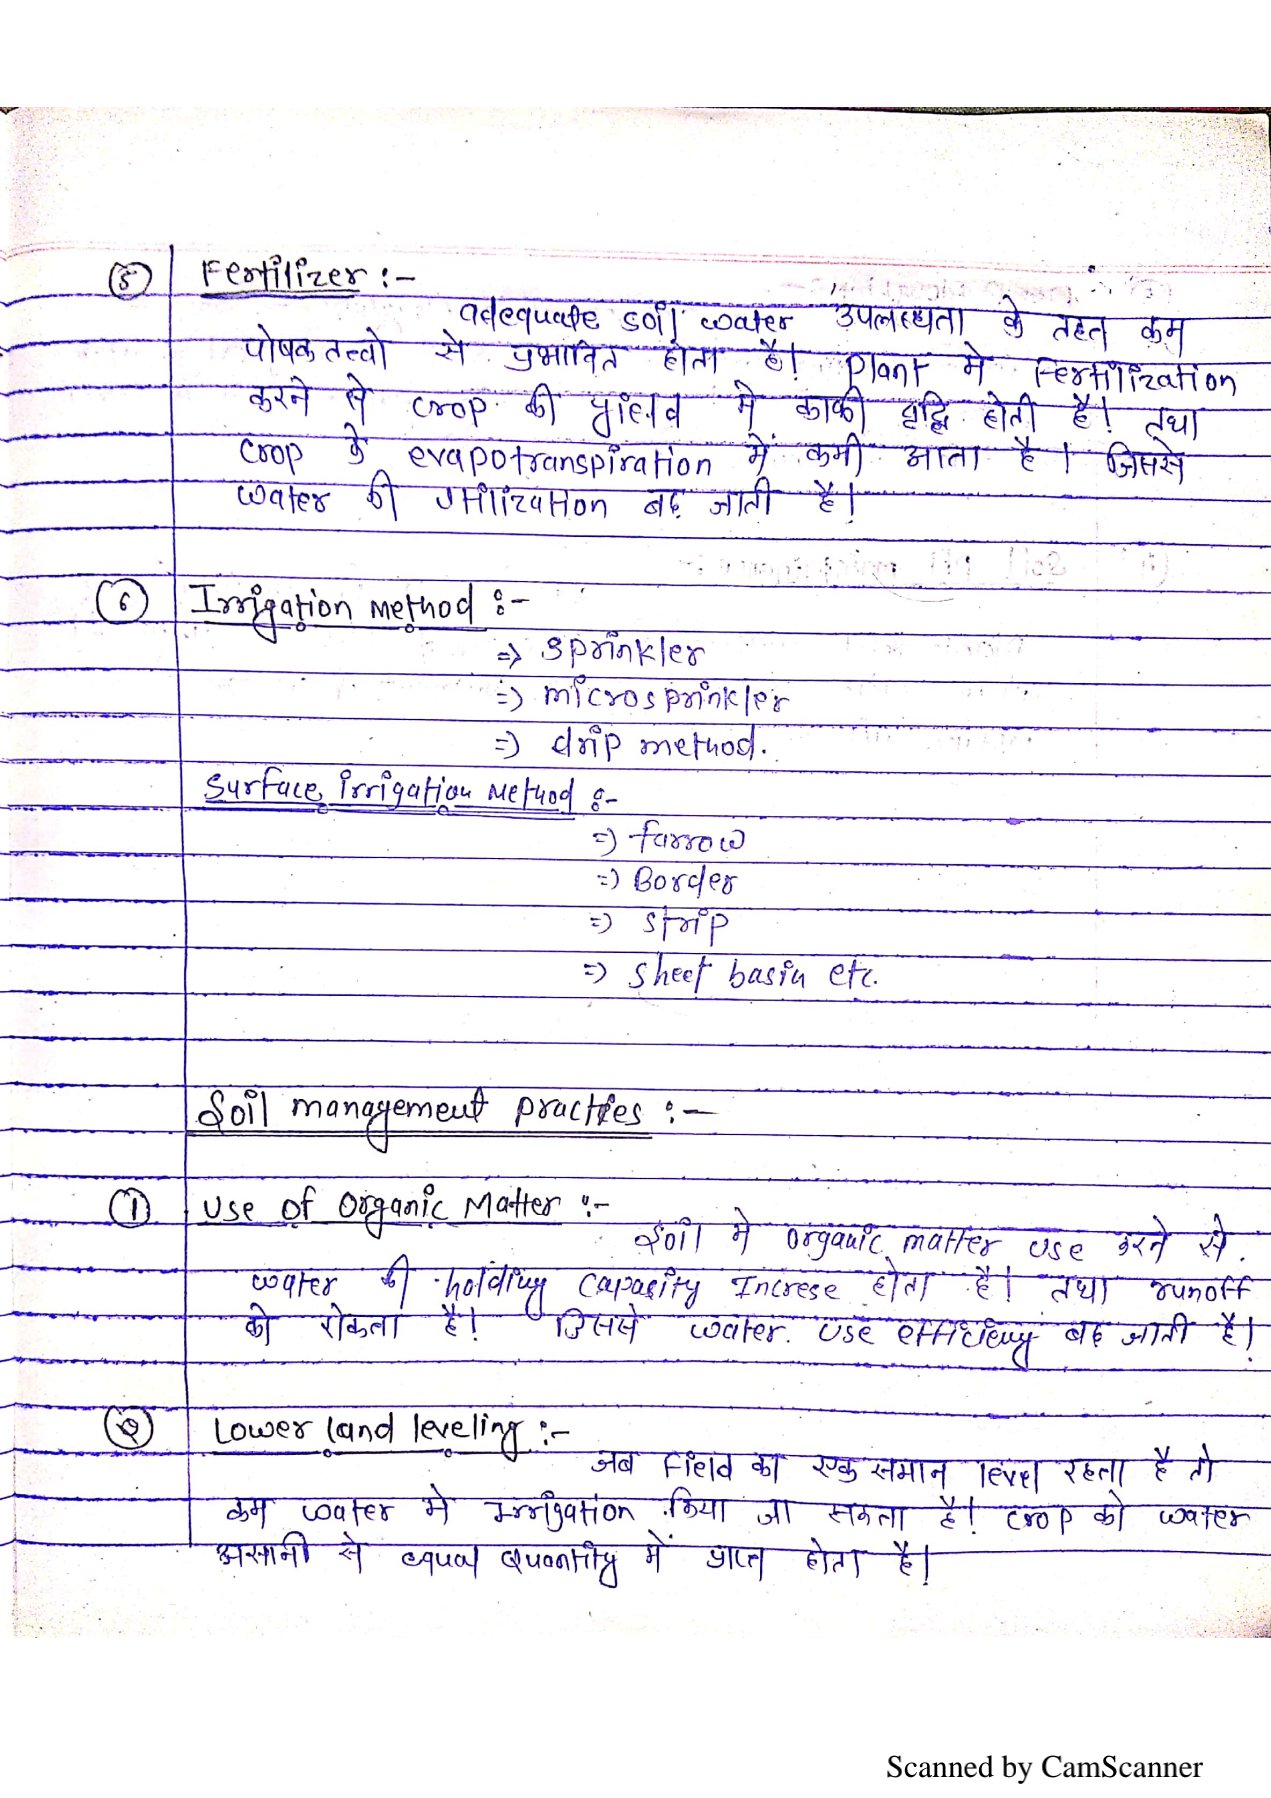 (5) Fertilizer :-
adequate soil water उपलब्धता के तहत कम
पोषकतत्वो से प्रभावित होता है। plant मे Fertilization
करने से crop की yield मे काफी वृद्धि होती है। तथा
crop के evapotranspiration में कमी आता है। जिससे
water की Utilization बढ़ जाती है।
(6) Irrigation Method :-
=> Sprinkler
=> microsprinkler
=> drip method.
Surface irrigation Method :-
=> farrow
=> Border
=> Strip
=> Sheet basin etc.
Soil management practies :-
(1) Use of Organic Matter :-
Soil मे organic matter use करने से
water की holding Capasity Increse होता है। तथा runoff
को रोकता है। जिससे water use efficiency बढ़ जाती है।
(2) Lower land leveling :-
जब Field का एक समान level रहता है तो
कम water मे Irrigation किया जा सकता है। Crop को water
असानी से equal Quantity में प्राप्त होता है।
Scanned by CamScanner